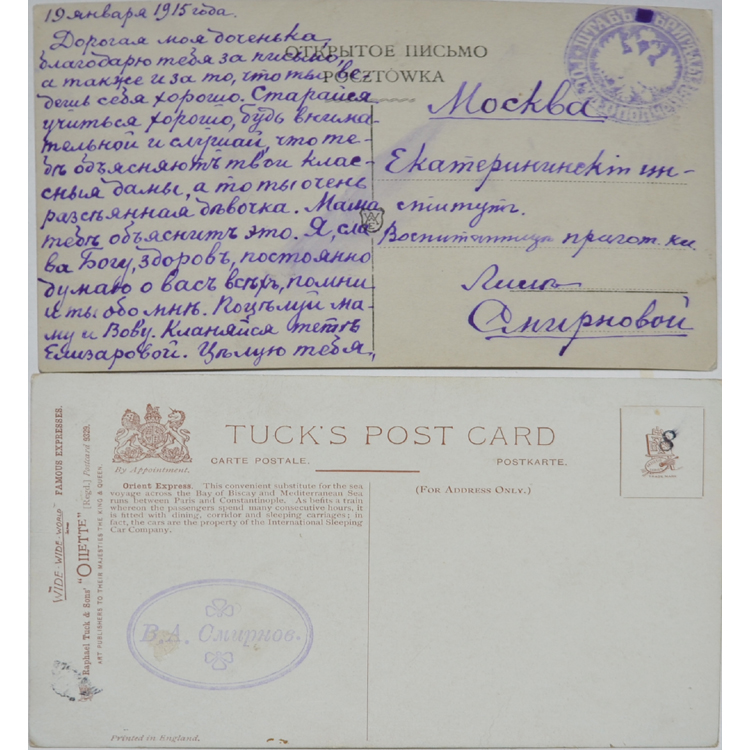 19 января 1915 года.
Дорогая моя доченька,
благодарю тебя за письмо,
а также и за то, что ты ве-
дешь себя хорошо. Старайся
учиться хорошо, будь внима-
тельной и слушай, что те-
бѣ объясняютъ твои клас-
сныя дамы, а то ты очень
разсѣянная дѣвочка. Мама
тебѣ объяснитъ это. Я, сла-
ва Богу, здоровъ, постоянно
думаю о васъ всѣхъ, помни
и ты обо мнѣ. Поцѣлуй ма-
му и Вову. Кланяйся тетѣ
Елизаровой. Цѣлую тебя,
ОТКРЫТОЕ ПИСЬМО
POCZTÓWKA
Москва
Екатерининскій ин-
ститутъ.
Воспитанницѣ пригот. кл.
Смирновой
WIDE-WIDE-WORLD FAMOUS EXPRESSES.
Raphael Tuck & Sons' "OILETTE" [Regd.] Postcard 9329.
ART PUBLISHERS TO THEIR MAJESTIES THE KING & QUEEN.
By Appointment.
TUCK'S POST CARD
CARTE POSTALE. POSTKARTE.
Orient Express. This convenient substitute for the sea
voyage across the Bay of Biscay and Mediterranean Sea
runs between Paris and Constantinople. As befits a train
whereon the passengers spend many consecutive hours, it
is fitted with dining, corridor and sleeping carriages; in
fact, the cars are the property of the International Sleeping
Car Company.
(FOR ADDRESS ONLY.)
8
В. А. Смирнов.
Printed in England.